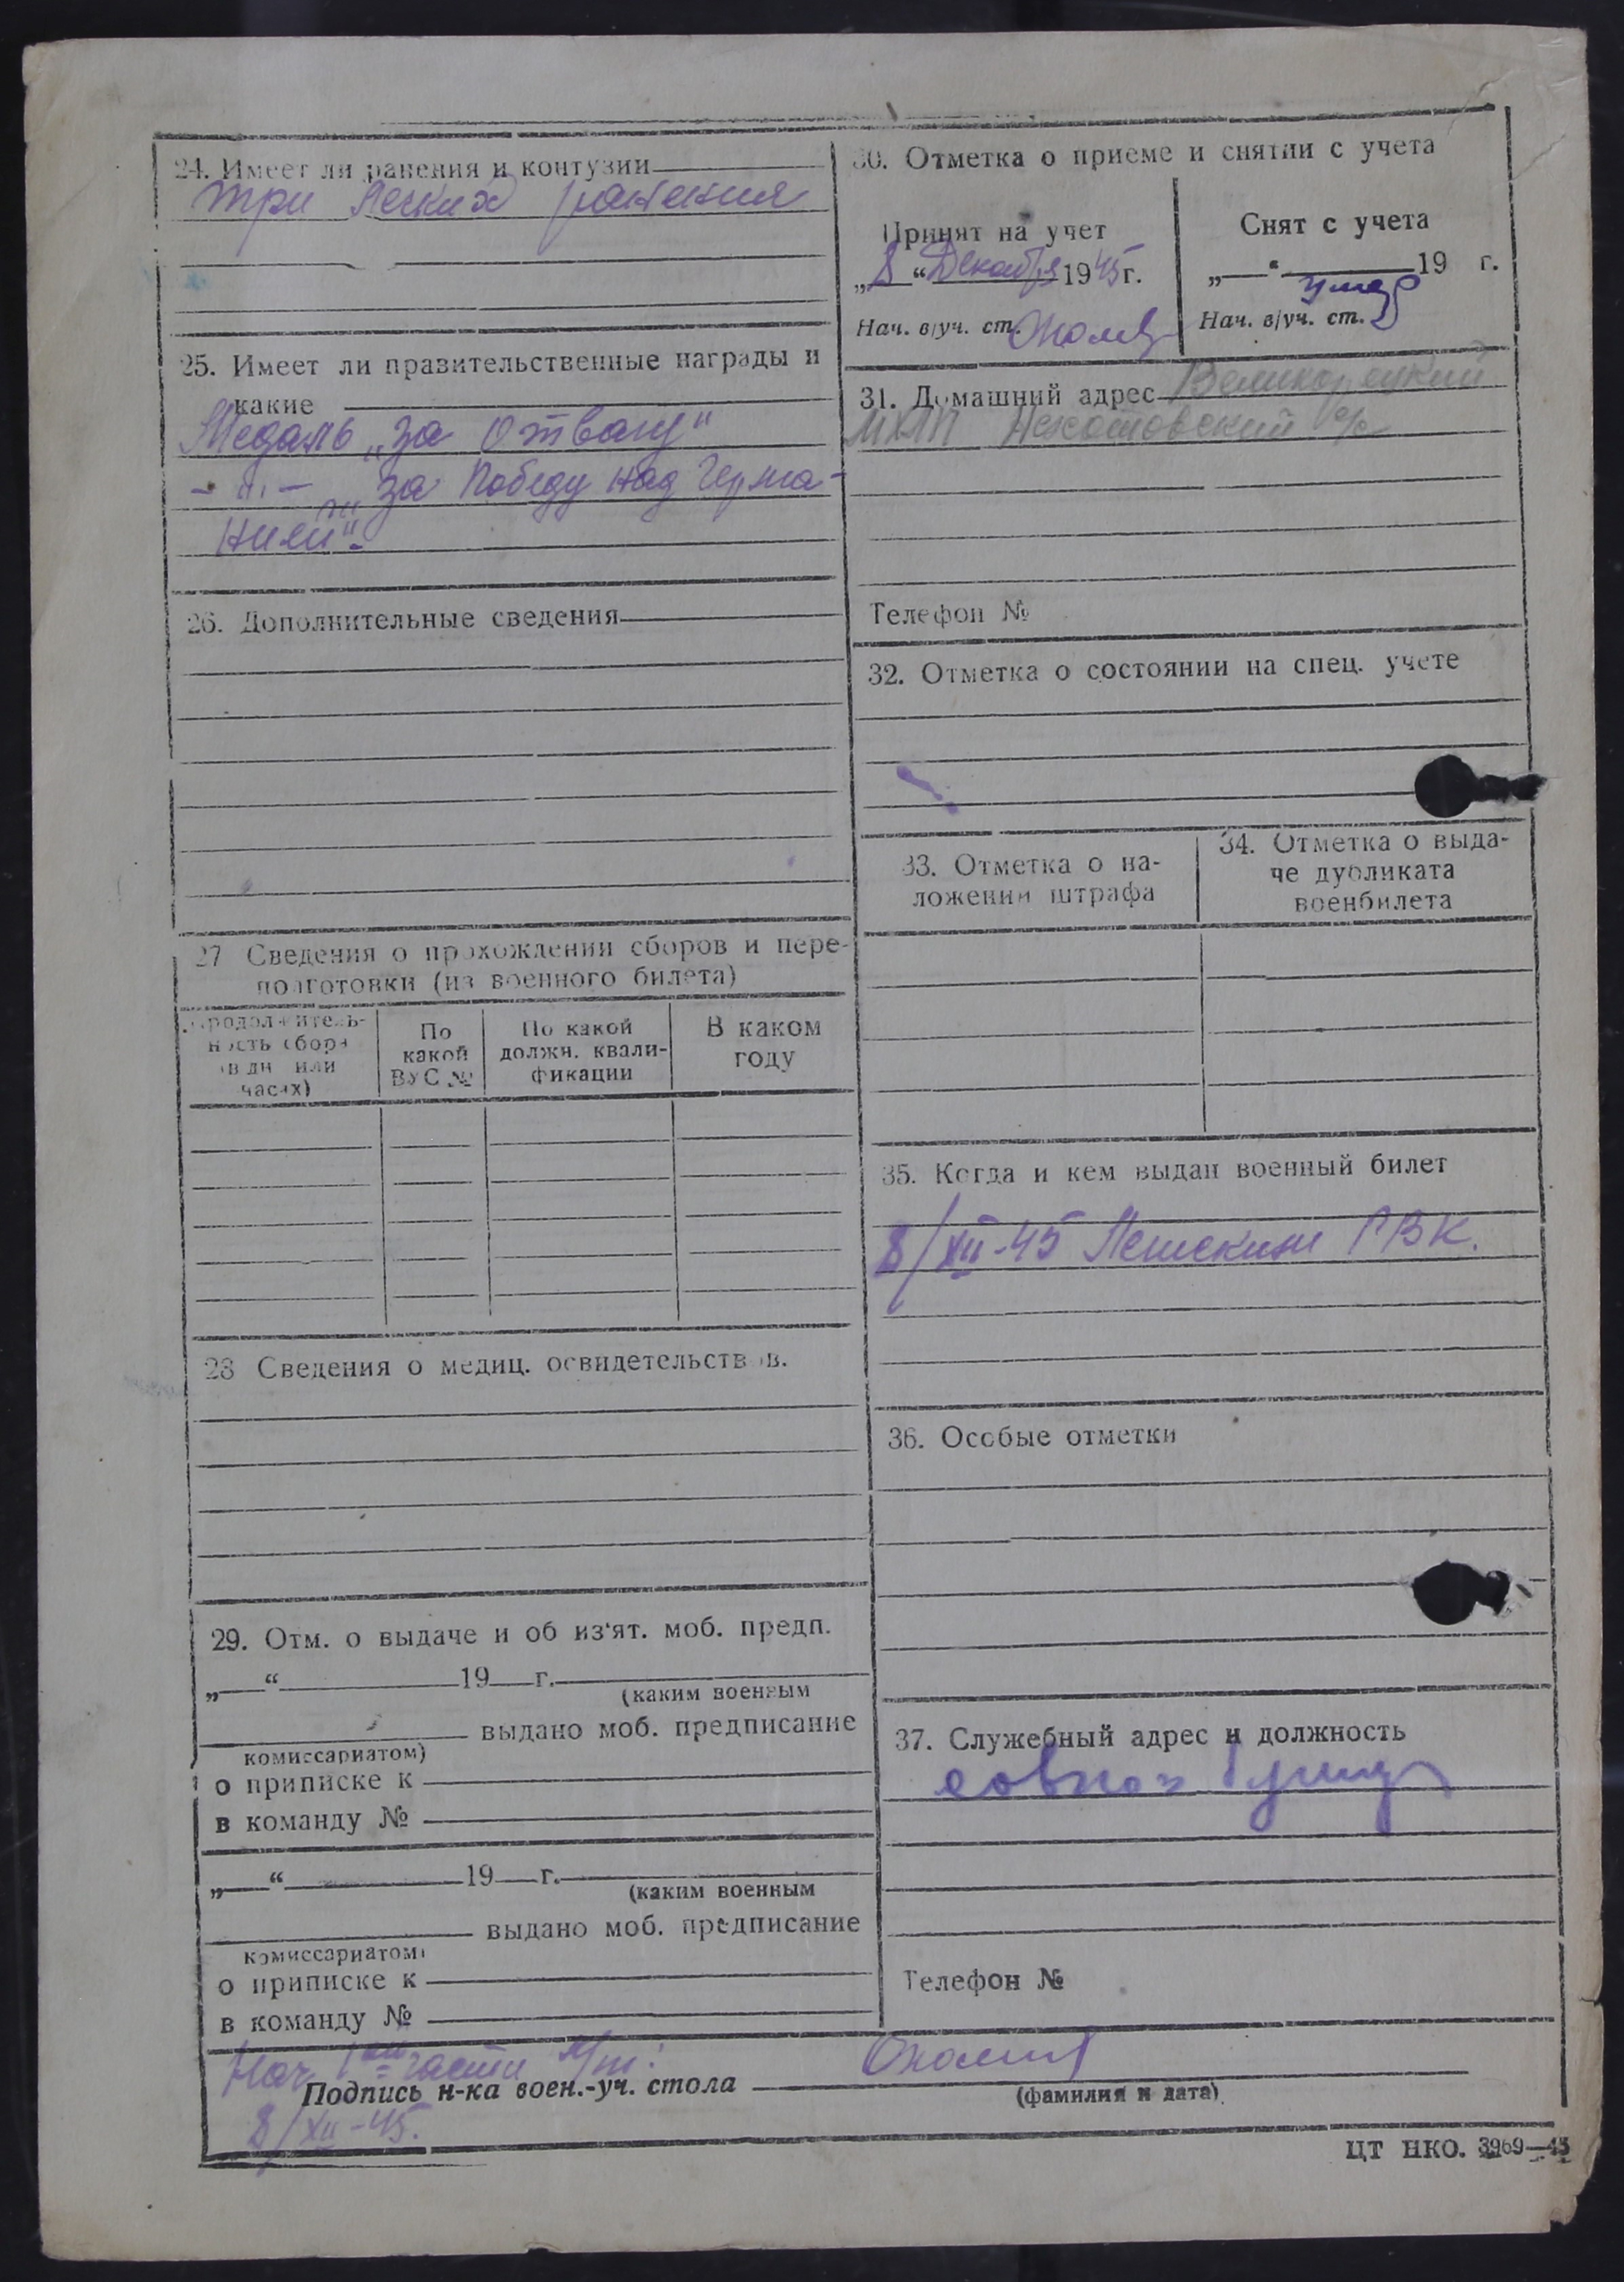 24. Имеет ли ранения и контузии
три легких ранения
25. Имеет ли правительственные награды и
какие
Медаль „за Отвагу"
- „ - „за Победу над Герма-
нией".
26. Дополнительные сведения
27 Сведения о прохождении сборов и пере-
подготовки (из военного билета)
Продолжитель-
ность сбора
(в дн или
часах)
По
какой
ВУС №
По какой
должн. квали-
фикации
В каком
году
28 Сведения о медиц. освидетельствов.
29. Отм. о выдаче и об из'ят. моб. предп.
„ “ 19 г.
(каким военным
выдано моб. предписание
комиссариатом)
о приписке к
в команду №
„ “ 19 г.
(каким военным
выдано моб. предписание
комиссариатом)
о приписке к
в команду №
30. Отметка о приеме и снятии с учета
Принят на учет
„8“ Декабря 1945 г.
Нач. в/уч. ст.
Снят с учета
„ “ 19 г.
умер
Нач. в/уч. ст.
31. Домашний адрес Великорецкий
с/с
Телефон №
32. Отметка о состоянии на спец. учете
33. Отметка о на-
ложении штрафа
34. Отметка о выда-
че дубликата
военбилета
35. Когда и кем выдан военный билет
8/XII-45 РВК.
36. Особые отметки
37. Служебный адрес и должность
Телефон №
Нач. части
Подпись н-ка воен.-уч. стола
(фамилия и дата)
8/XII-45.
ЦТ НКО. 3969—45